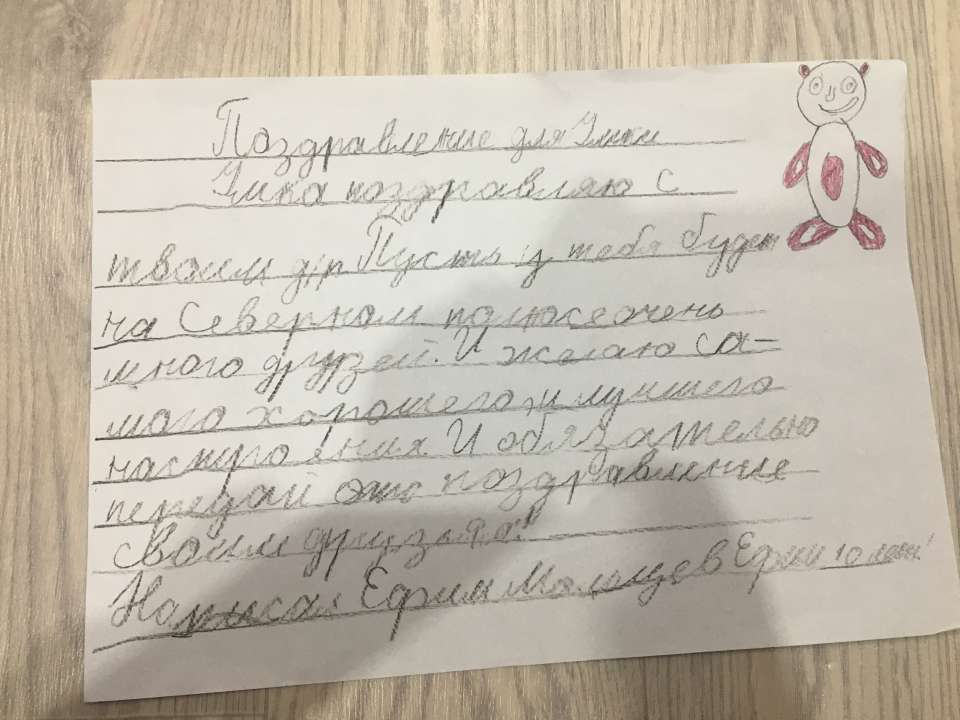 Поздравление для Умки
Умка поздравляю с
твоим д/р Пусть у тебя будет
на Северном полюсе очень
много друзей. И желаю са-
мого хорошего и лучшего
настроения И обязательно
передай это поздравление
своим друзьям!
Написал Ефим Мальцев Ефим 10 лет!